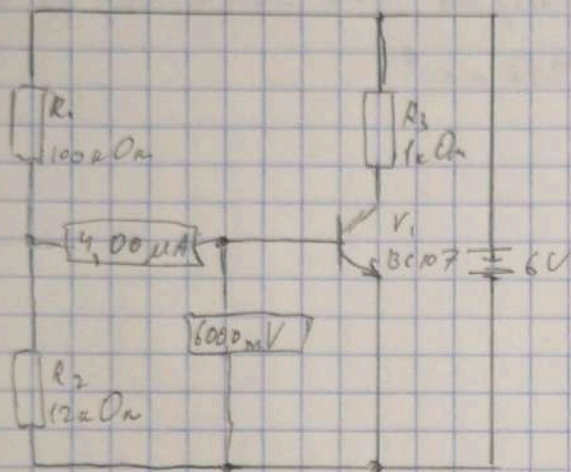 R₁
100к Ом
R₃
1к Ом
4,00 μA
V₁
BC107
6V
6000 mV
R₂
12к Ом